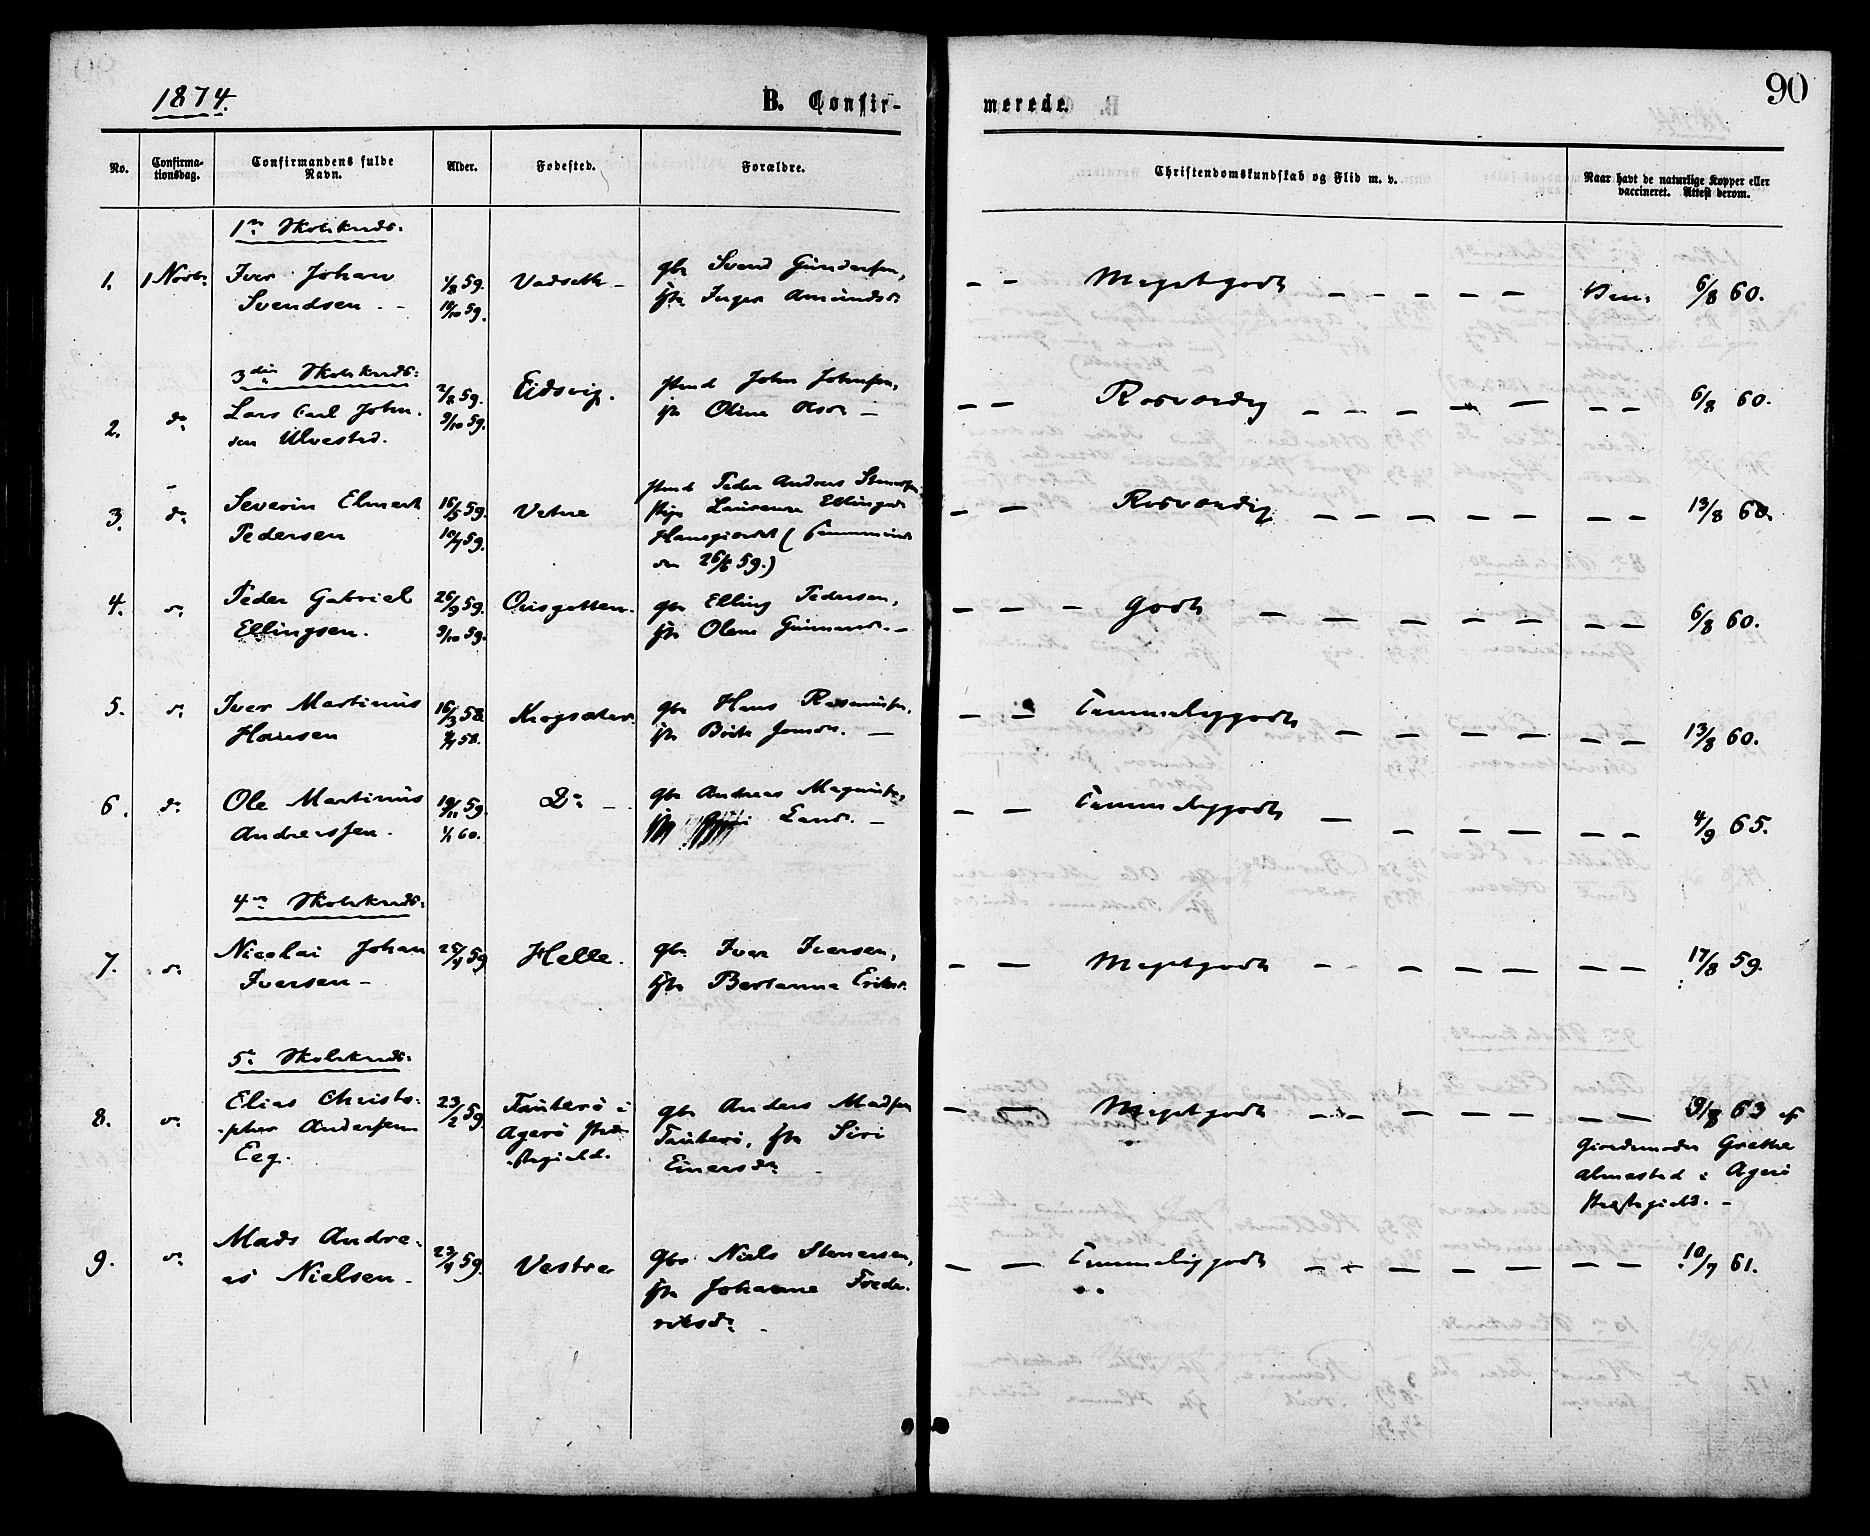 1874.
B. Confir-
merede.
90
No.
Confirma-
tionsdag.
Confirmandens fulde
Navn.
Alder.
Fødested.
Forældre.
Christendomskundskab og Flid m. v.
Naar havt de naturlige Kopper eller
vaccineret. Attest derom.
1ste Skolekreds.
1. 1 Novbr. Iver Johan
Svendsen. -
4/8 59.
Vadseth -
gbr Svend Gundersen,
Inger Amundsdr
Megetgodt
6/8 60.
3die Skolekreds:
2. do
Lars Carl John-
sen Ulvested.
2/8 59.
9/10 59.
Eidsvig.
John Johnsen,
Oline Olsdr -
Rosværdig
6/8 60.
3. do
Severin Elmert
Pedersen
16/5 59.
10/7 59.
Vatne
Peder Andreas
Laurense Ellingsdr
26/6 59.)
Rosværdig
13/8 60.
4. do
Peder Gabriel
Ellingsen.
26/9 59.
9/10 59.
gbr Elling Pedersen,
Olene
Godt
6/8 60.
5. do
Iver Martinus
Hansen
16/3 58.
Krogsæter.
gbr Hans Rasmussen,
Temmeliggodt
13/8 60.
6. do
Ole Martinus
Andreassen.
19/11 59.
1/1 60.
Do -
gbr Andreas Magnussen,
Temmeliggodt
4/9 65.
4de Skolekreds:
7. do
Nicolai Johan
Iversen -
25/4 59
Helle.
gbr. Iver Iversen,
Bertanna Eriksd.
Megetgodt
17/8 59.
5te Skolekreds:
8. do
Elias Christo-
pher Andersen
Eeg.
23/2 59
Tauterö i
Agerö Præ-
stegield.
gbr Anders Madsen
Tauterö, Siri
Einersdr
Megetgodt
9/8 63 af
Giordemoder Grethe
Almested i Agerö
Præstegield. -
9. do
Mads Andre-
as Nielsen -
23/4 59.
Vestre
Gbr Niels Stenersen,
Johanne Frede-
riksdr -
Temmeliggodt
10/7 61.